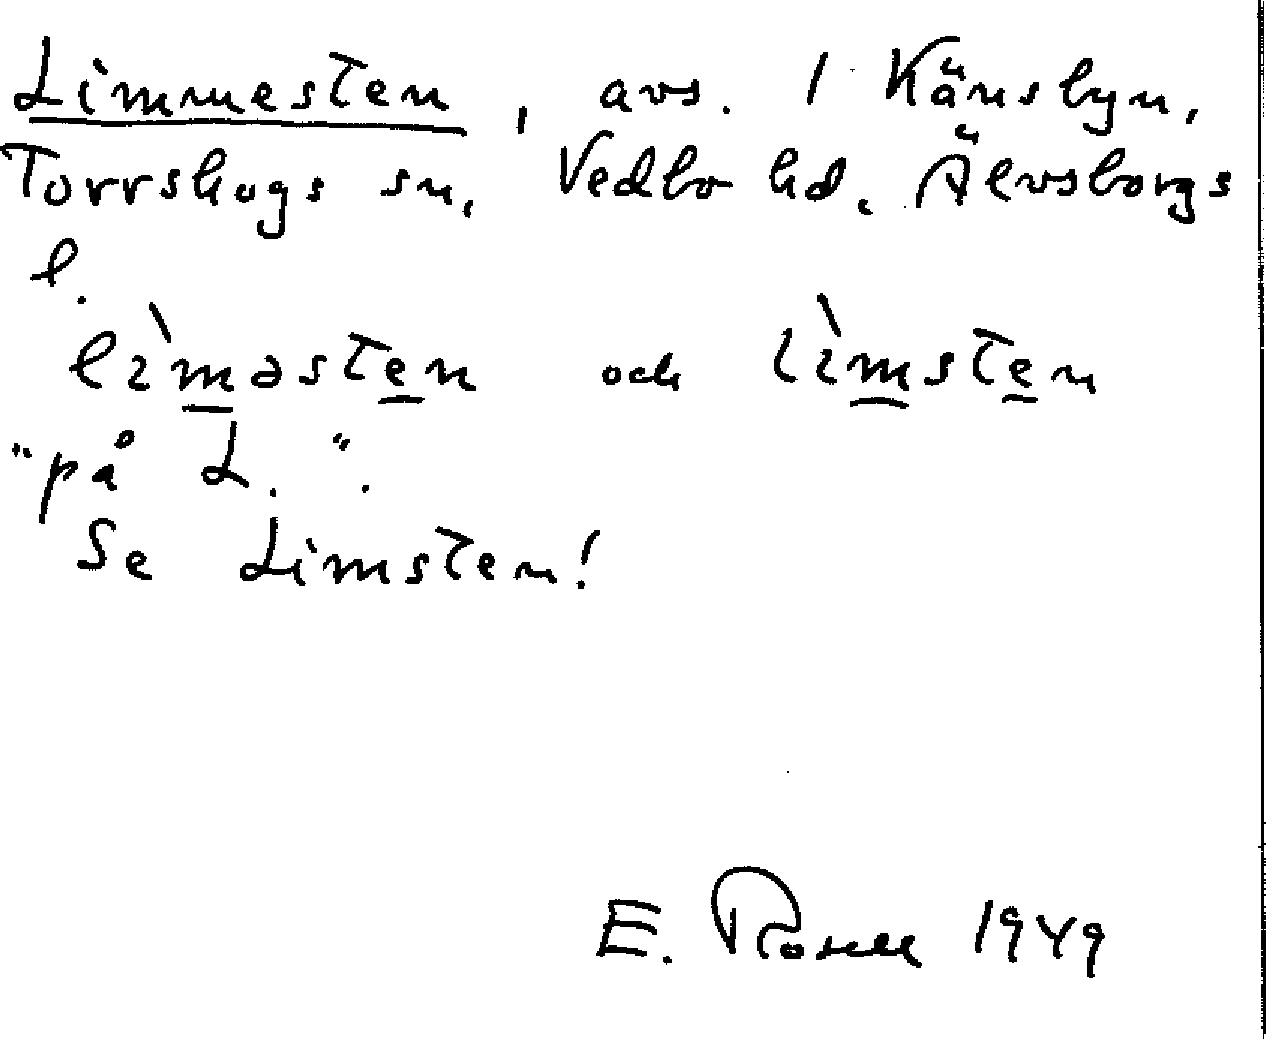 Limmesten, avs. i Känsbyn,
Torrskogs sn, Vedbo hd. Älvsborgs
l.
lìməsten och lìmsten
"på L.".
Se Limsten!
E. Rosell 1949